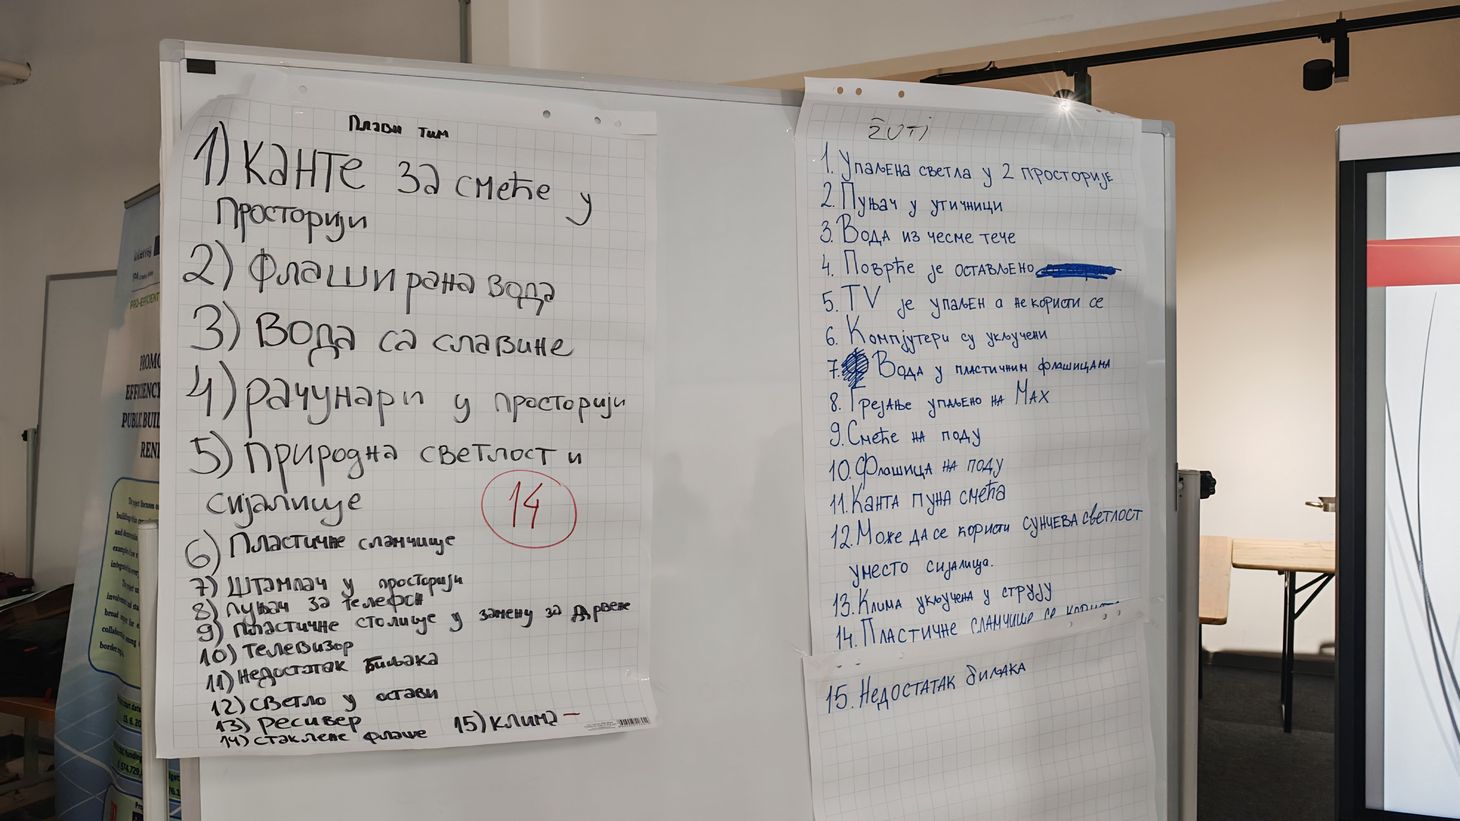 Плави тим
1) Канте за смеће у
просторији
2) Флаширана вода
3) Вода са славине
4) рачунари у просторији
5) Природна светлост и
сијалице
14
6) Пластичне сламчице
7) Штампач у просторији
8) пуњач за телефон
9) пластичне столице у замену за дрвене
10) телевизор
11) недостатак биљака
12) светло у остави
13) ресивер
14) стаклене флаше
15) клима –
ŽUTI
1. Упаљена светла у 2 просторије
2. Пуњач у утичници
3. Вода из чесме тече
4. Поврће је остављено
5. TV је упаљен а не користи се
6. Компјутери су укључени
7. Вода у пластичним флашицама
8. Грејање упаљено на Max
9. Смеће на поду
10. Флашица на поду
11. Канта пуна смећа
12. Може да се користи сунчева светлост
уместо сијалица.
13. Клима укључена у струју
14. Пластичне сламчице се користе
15. Недостатак биљака
PRO-EFFICIENT